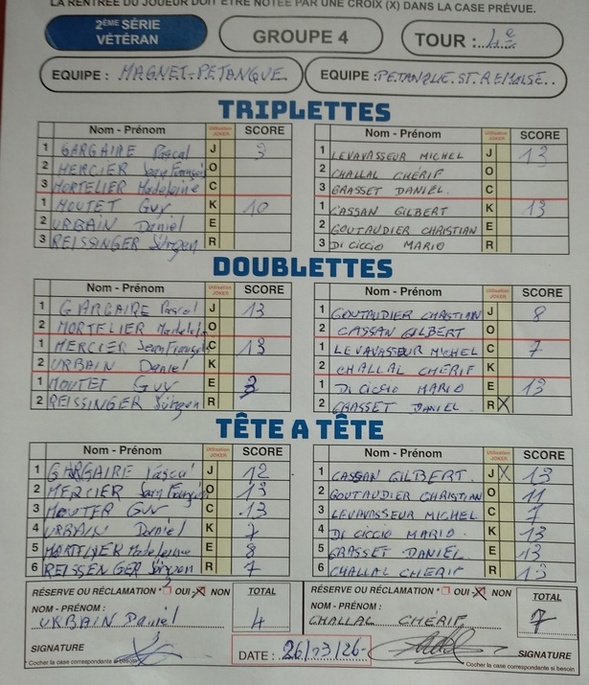 LA RENTRÉE DU JOUEUR DOIT ÊTRE NOTÉE PAR UNE CROIX (X) DANS LA CASE PRÉVUE.
2ÈME SÉRIE VÉTÉRAN GROUPE 4 TOUR : 4e
EQUIPE : MAGNET-PETANQUE EQUIPE : PETANQUE.ST.REMOISE..
TRIPLETTES
Nom - Prénom Utilisation JOKER SCORE Nom - Prénom Utilisation JOKER SCORE
1 GARGAIRE Pascal J 3 1 LEVAVASSEUR MICHEL J 13
2 MERCIER Jean François O 2 CHALLAL CHÉRIF O
3 MORTELIER Madeleine C 3 GRASSET DANIEL C
1 MOUTET Guy K 10 1 CASSAN GILBERT K 13
2 URBAIN Daniel E 2 GOUTAUDIER CHRISTIAN E
3 REISSINGER Jürgen R 3 DI CICCIO MARIO R
DOUBLETTES
Nom - Prénom Utilisation JOKER SCORE Nom - Prénom Utilisation JOKER SCORE
1 GARGAIRE Pascal J 13 1 GOUTAUDIER CHRISTIAN J 8
2 MORTELIER O 2 CASSAN GILBERT O
1 MERCIER Jean François C 13 1 LEVAVASSEUR MICHEL C 7
2 URBAIN Daniel K 2 CHALLAL CHERIF K
1 MOUTET Guy E 1 DI CICCIO MARIO E 13
2 REISSINGER Jürgen R 2 GRASSET DANIEL R X
TÊTE A TÊTE
Nom - Prénom Utilisation JOKER SCORE Nom - Prénom Utilisation JOKER SCORE
1 GARGAIRE Pascal J 12 1 CASSAN GILBERT J X 13
2 MERCIER Jean François O 13 2 GOUTAUDIER CHRISTIAN O 11
3 MOUTET GUY C 13 3 LEVAVASSEUR MICHEL C 7
4 URBAIN Daniel K 7 4 DI CICCIO MARIO K 13
5 MORTELIER Madeleine E 8 5 GRASSET DANIEL E 13
6 REISSENGER Jürgen R 7 6 CHALLAL CHERIF R 13
RÉSERVE OU RÉCLAMATION * OUI - X NON TOTAL RÉSERVE OU RÉCLAMATION * OUI - X NON TOTAL
NOM - PRÉNOM : NOM - PRÉNOM :
URBAIN Daniel 4 CHALLAL CHÉRIF 7
SIGNATURE DATE : SIGNATURE
* Cocher la case correspondante si besoin * Cocher la case correspondante si besoin